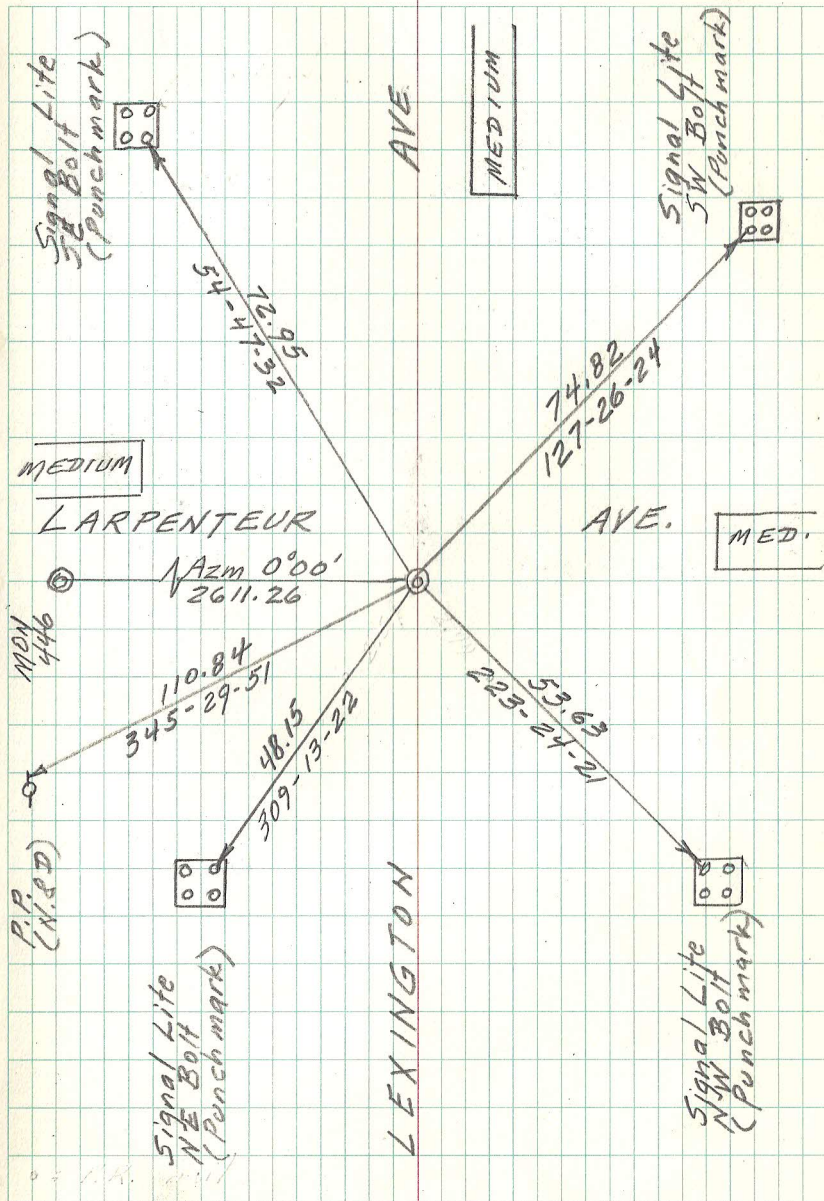 Signal Lite
SE Bolt
(Punchmark)
AVE.
MEDIUM
Signal Lite
SW Bolt
(Punchmark)
54-47-32
74.82
127-26-24
MEDIUM
LARPENTEUR
AVE.
MED.
MON
446
Azm 0°00'
2611.26
110.84
345-29-51
48.15
309-13-22
53.63
223-24-21
P.P.
(N.&D)
LEXINGTON
Signal Lite
NE Bolt
(Punchmark)
Signal Lite
NW Bolt
(Punchmark)